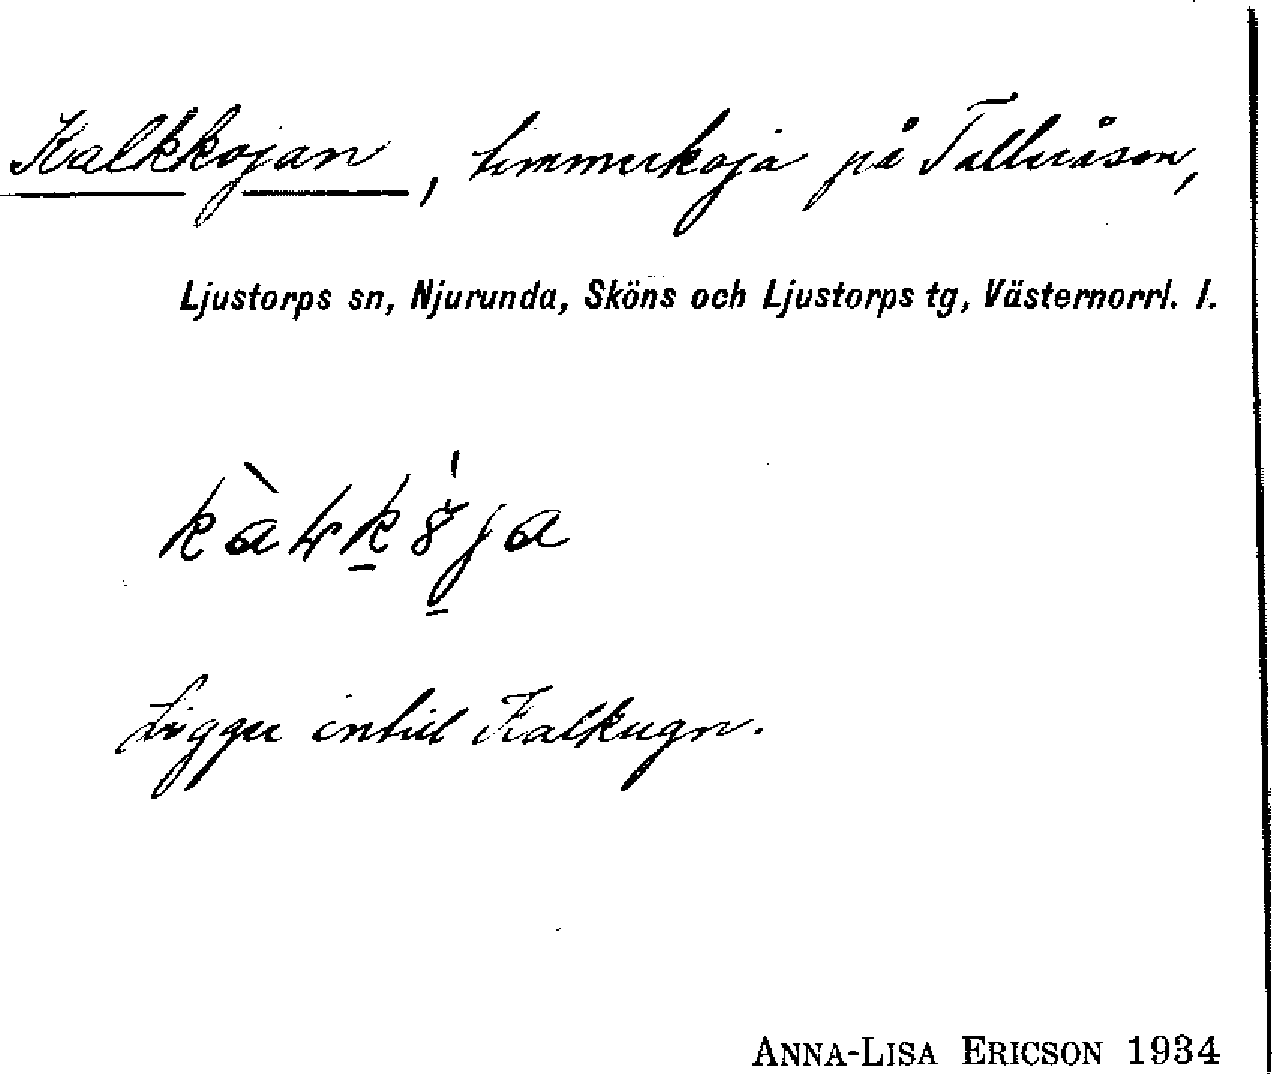 Kalkkojan, timmerkoja på Talleråsen,
Ljustorps sn, Njurunda, Sköns och Ljustorps tg, Västernorrl. l.
Ligger intill Kalkugn.
ANNA-LISA ERICSON 1934